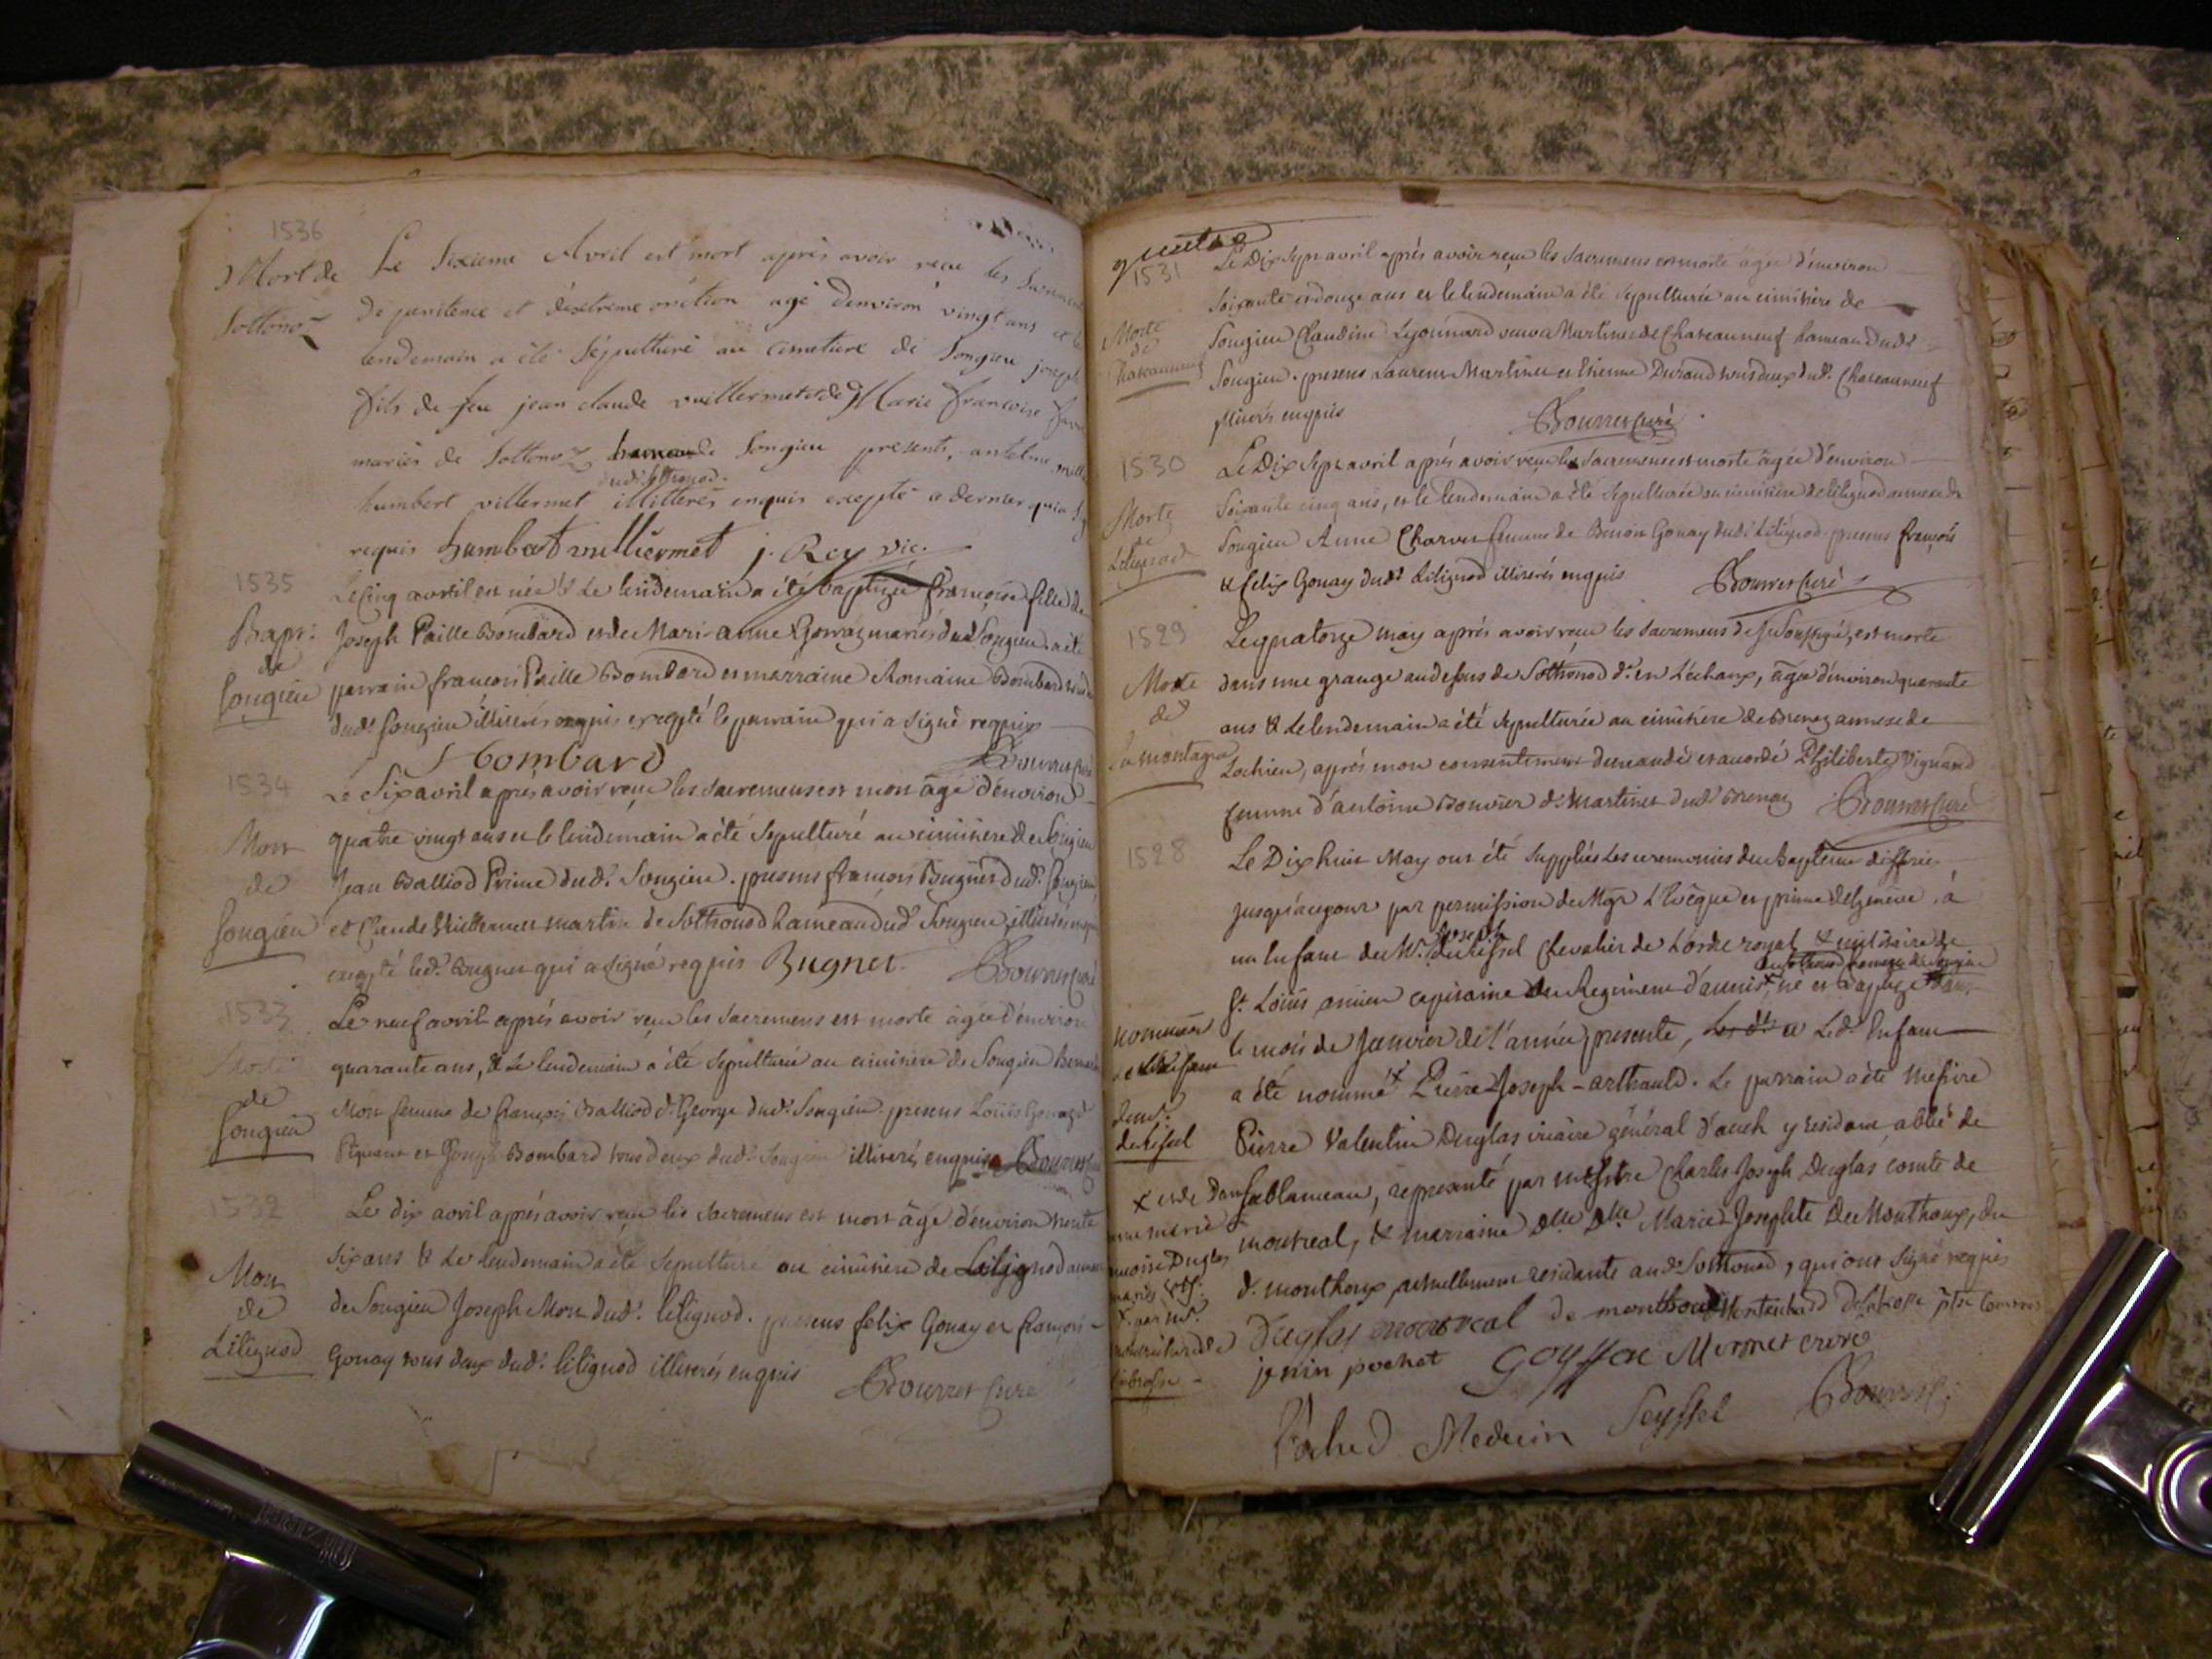 1536
Mort de
Sottonoz
Le Sixieme Avril est mort aprés avoir recu les
de penitence et d'extreme onction agé denviron vingt ans et le
lendemain a été sépulturé au cimetiere de Songieu joseph
fils de feu jean claude vuillermet et de Marie francoise
mariés de Sottonoz hameau de Songieu presents, antelme
dud. Sothonod.
humbert villermet illitterés enquis excepté ce dernier qui a
requis humbert vuilliermet j. Rey vic.
1535
Bapt:
de
Songieu
Le Cinq avril est née & Le lendemain a été baptizée francoise fille de
Joseph Paille Bombard et de Marianne Gonraz mariés dud. Songieu. a été
parrain francois Paille Bombard et marraine Romaine Bombard
dud. Songieu illiterés enquis excepté le parrain qui a signé requis
Bombard Bourret Curé
1534
Mort
de
Songieu
Le Six avril aprés avoir reçu les sacremens est mort âgé d'environ
quatre vingt ans et le lendemain a été sepulturé au cimitiere de Songieu
Jean Balliod Prime dud. Songieu. presens françois Bugnet dud. Songieu
et Claude Vuillermet martin de Sothonod hameau dud. Songieu illiterés enquis
excepté led. Bugnet qui a signé requis Bugnet. Bourret Curé
1533
Morte
de
Songieu
Le neuf avril aprés avoir reçu les sacremens est morte agée d'environ
quarante ans, & Le lendemain a été sepulturée au cimitiere de Songieu
Mon femme de françois Balliod d. George dud. Songieu. presens Loüis Gonraz
et Joseph Bombard tous deux dud. Songieu illiterés enquis Bourret
1532
Mort
de
Lilignod
Le dix avril aprés avoir reçu les sacremens est mort âgé d'environ trente
six ans & Le lendemain a été sepulturé au cimitiere de Lilignod annexe
de Songieu Joseph Mon dud. lilignod. presens felix Gonay et françois
Gonay tous deux dud. lilignod illiterés enquis Bourret Curé
quatre
1531
Morte
de
Chateauneuf
Le Dix Sept avril aprés avoir reçu les sacremens est morte agée d'environ
soixante et douze ans et le lendemain a été sepulturée au cimitiere de
Songieu Claudine veuve Martinet de Chateauneuf hameau dud.
Songieu. presens Laurent Martinet et Etienne Durand tous deux dud. Chateauneuf
illiterés enquis Bourret Curé
1530
Morte
de
Lilignod
Le Dix Sept avril aprés avoir reçu les sacremens est morte âgée d'environ
soixante cinq ans, et le lendemain a été sepulturée au cimitiere de lilignod annexe de
Songieu Anne Charvet femme de Benoit Gonay dud. Lilignod. presens françois
& felix Gonay dud. Lilignod illiterés enquis Bourret Curé
1529
Morte
de
la montagne
Le quatorze may aprés avoir reçu les sacremens de est morte
dans une grange au dessus de Sothonod d. en Lechaux, âgée d'environ quarante
ans & le lendemain a été sepulturée au cimitiere de Brenaz annexe de
Lochieu, aprés mon consentement demandé et accordé Philiberte Vignand
femme d'antoine Bouvier d. Martinet dud. Brenaz Bourret Curé
1528
Le Dix huit May ont été suppléés Les ceremonies du Bapteme differées
jusqu'a ce jour par permission de Mgr L'Evêque et prince de Geneve, à
Joseph
un Enfant de Mr. de Seissel Chevalier de L'ordre royal & militaire de
à Sothonod hameau de Songieu
St. Loüis ancien capitaine du Regiment d'aunis né et baptizé dans
nomination
de l'Enfant
de Mr.
de Seissel
le mois de Janvier de l'année presente, et Led. Enfant
a été nommé Pierre Joseph-arthaud. Le parrain a été Messire
Pierre Valentin Duglas vicaire général d'auch y residant, abbé de
X et de Dame
anne marie
antoine Duglas
mariés
X par Mr.
labrosse
Sablanceau, representé par messire Charles Joseph Duglas comte de
montreal, & marraine Dlle Marie Josephte De Monthoux, du
d. monthoux actuellement residante aud. Sothonod, qui ont signé requis
Duglas montreal de monthoux Montrichard Delabrosse ptre
jenin pochet Goyffon Mermet Curé
Pochet Medecin Seyssel Bourret